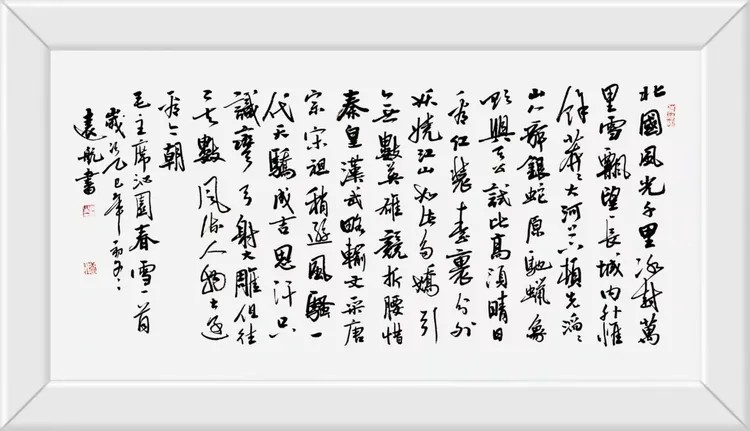 北國風光千里冰封萬
里雪飄望長城內外惟
餘莽〻大河上下頓失滔〻
山舞銀蛇原馳蠟象
欲與天公試比高須晴日
看紅裝素裹分外
妖嬈江山如此多嬌引
無數英雄競折腰惜
秦皇漢武略輸文采唐
宗宋祖稍遜風騷一
代天驕成吉思汗只
識彎弓射大雕俱往
矣數風流人物還
看今朝
毛主席沁園春雪一首
歲次乙巳年初冬
袁航書